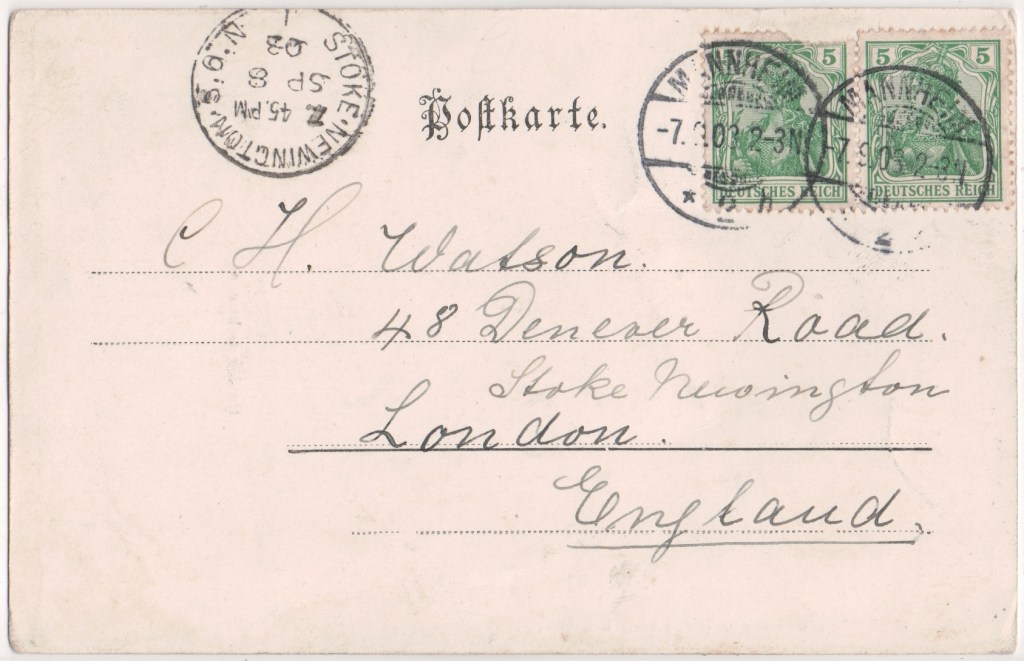 STOKE·NEWINGTON·S.O.N.
Z
45.PM
SP 8
03
Postkarte.
5
5
MANNHEIM
-7.9.03.2-3N
* 2 n
MANNHEIM
-7.9.03.2-3N
2
DEUTSCHES REICH
DEUTSCHES REICH
C H. Watson.
48 Denever Road.
Stoke Newington
London.
England.